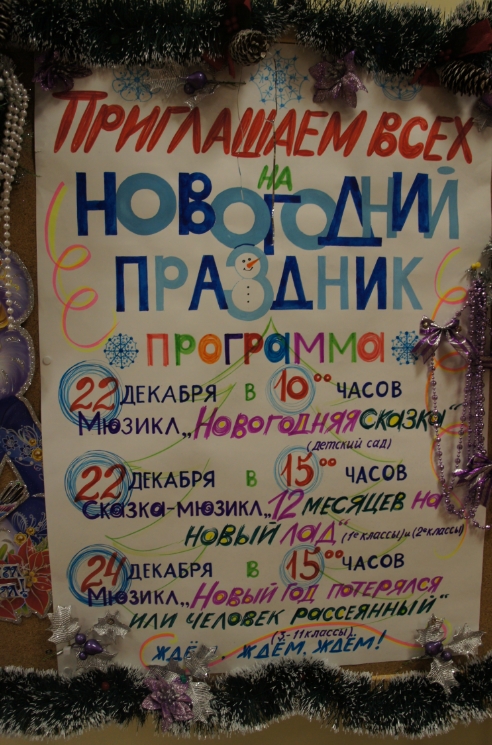 ПРИГЛАШАЕМ ВСЕХ
НА
НОВОГОДНИЙ
ПРАЗДНИК
ПРОГРАММА
22 ДЕКАБРЯ В 10⁰⁰ ЧАСОВ
МЮЗИКЛ „НОВОГОДНЯЯ СКАЗКА“
(детский сад)
22 ДЕКАБРЯ В 15⁰⁰ ЧАСОВ
СКАЗКА-МЮЗИКЛ „12 МЕСЯЦЕВ НА
НОВЫЙ ЛАД“ (1ᵉ классы) и (2ᵉ классы)
24 ДЕКАБРЯ В 15⁰⁰ ЧАСОВ
МЮЗИКЛ „НОВЫЙ ГОД ПОТЕРЯЛСЯ
ИЛИ ЧЕЛОВЕК РАССЕЯННЫЙ“
(3-11 классы)
ЖДЁМ, ЖДЁМ, ЖДЁМ!